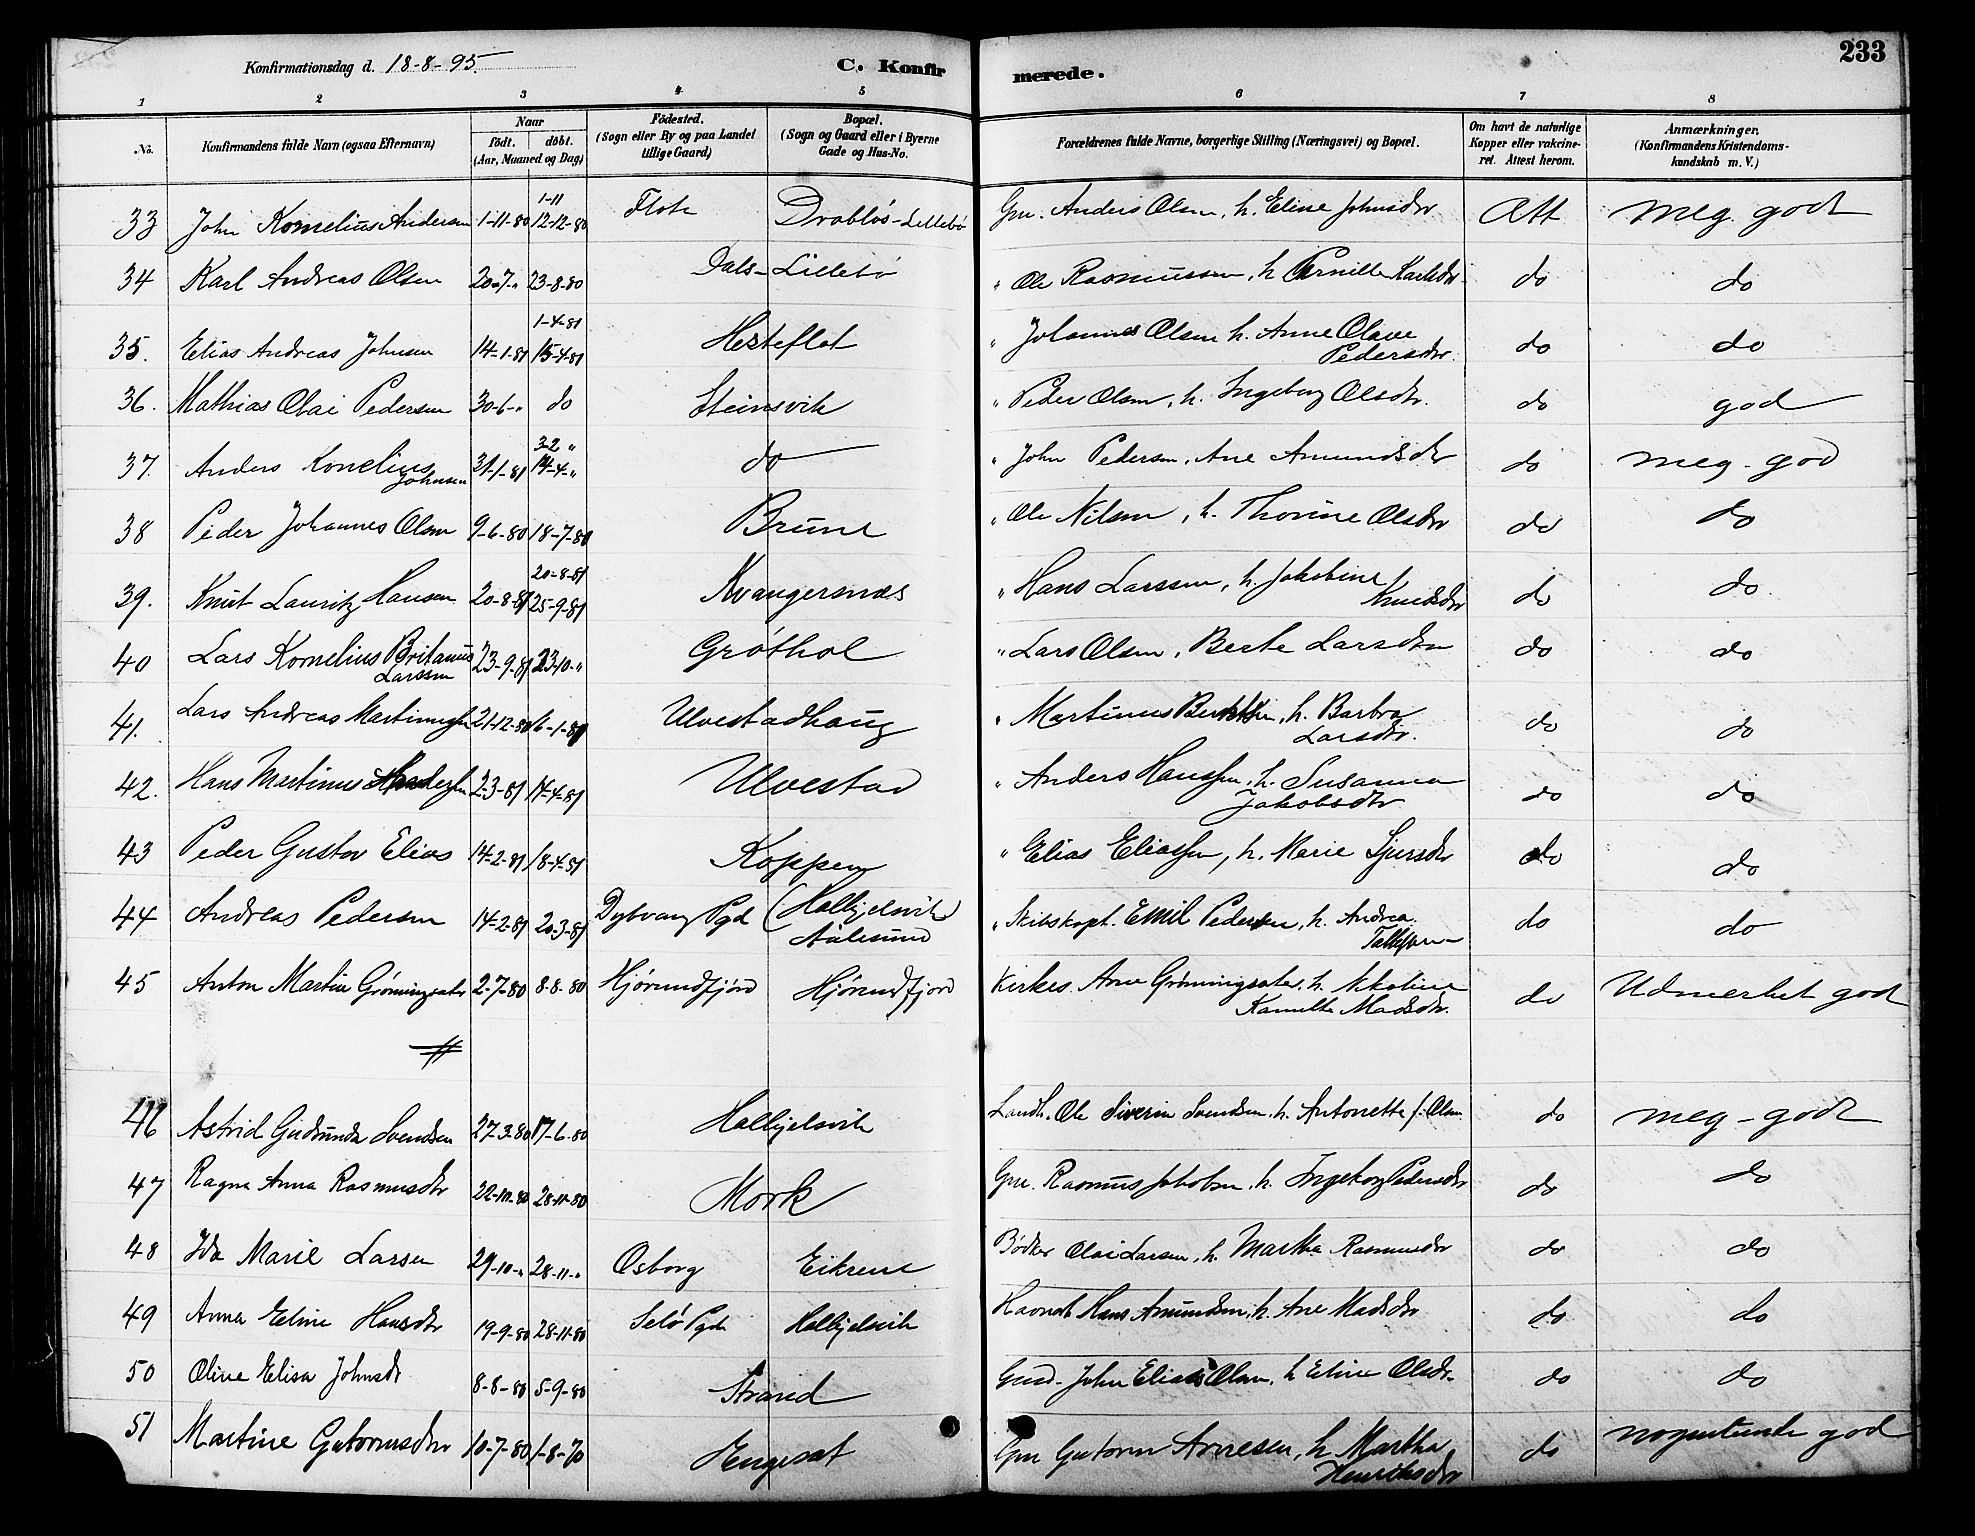 233
Konfirmationsdag d. 18-8-95.
C. Konfirmerede.
1 2 3 4 5 6 7 8
No.
Konfirmandens fulde Navn (ogsaa Efternavn)
Naar
födt. döbt.
(Aar, Maaned og Dag)
Födested.
(Sogn eller By og paa Landet
tillige Gaard)
Bopæl.
(Sogn og Gaard eller i Byerne
Gade og Hus-No.
Forældrenes fulde Navne, borgerlige Stilling (Næringsvei) og Bopæl.
Om havt de naturlige
Kopper eller vakcine-
ret. Attest herom.
Anmærkninger.
(Konfirmandens Kristendoms-
kundskab m. V.)
1-11
33 John Kornelius Andersen 1-11-80 12-12-80 Flote Drabløs-Lillebø Gm. Anders Olsen, h. Eline Johnsdtr. Att meg. godt
34 Karl Andreas Olsen 20-7-" 23-8-80 Dals-Lillebø " Ole Rasmussen, h. Pernille Karlsdtr. do do
1-4-81
35. Elias Andreas Johnsen 14-1-81 15-4-81 Hesteflot " Johannes Olsen h. Anne Olave do do
Pedersdtr.
36. Mathias Olai Pedersen 30-6-" do Steinsvik " Peder Olsen, h. Ingeborg Olsdtr. do god
3-2 "
37. Anders Kornelius 31-1-81 14-4-" do " John Pedersen, Ane Amundsdtr do meg-god
Johnsen
38 Peder Johannes Olsen 9-6-80 18-7-80 Brune " Ole Nilsen, h. Thorine Olsdtr do do
20-8-81
39. Knut Lauritz Hansen 20-8-81 25-9-81 Kvangersnæs " Hans Larssen, h. Jakobine do do
Knutsdtr
40 Lars Kornelius Britanus 23-9-81 23-10-" Grøthol " Lars Olsen, Berte Larsdtr do do
Larssen
41. Lars Andreas Martinussen 21-12-80 6-1-81 Ulvestadhaug " Martinus h. Barbra do do
Larsdtr.
42. Hans Martinus Anderssen 2-3-81 14-4-81 Ulvestad " Anders Hanssen, h. Susanna do do
Jakobsdtr
43 Peder Gustav Elias 14-2-81 18-4-81 Koppen " Elias Eliassen, h. Marie Sjursdtr do do
44 Andreas Pedersen 14-2-81 20-3-81 Dybvaag Pgd (Halkjelsvik) " Skibskapt. Emil Pedersen, h. Andrea do do
Aalesund
45 Anton Martin Grønningsæter 2-7-80 8-8-80 Hjørundfjord Hjørundfjord Kirkes. Arne Grønningsæter, h. Nikoline do Udmerket god
Kamilla Madsdtr.
46 Astrid Gudrunda Svendsen 27-3-80 17-6-80 Halkjelsvik Landh. Ole Siverin Svendsen, h. Antonette f. Olsen do meg-godt
47 Ragna Anna Rasmusdtr 22-10-80 28-11-80 Mork Gm. Rasmus Jakobsen, h. Ingeborg Pedersdtr do do
48 Ida Marie Larsen 29-10-" 28-11-" Osborg Eikrene Bødker Olai Larsen, h. Martha Rasmusdtr do do
49 Anna Eline Hansdtr 19-9-80 28-11-80 Selø Pgd Halkjelsvik Hans Amundsen, h. Ane Madsdtr do do
50 Oline Elisa Johnsdtr 8-8-80 5-9-80 Strand John Elias Olsen, h Eline Olsdtr. do do
51 Martine Gutormsdtr 10-7-80 1-8-70 Hengesat Gm Gutorm Arnesen, h. Martha do nogenlunde god
Henriksdtr